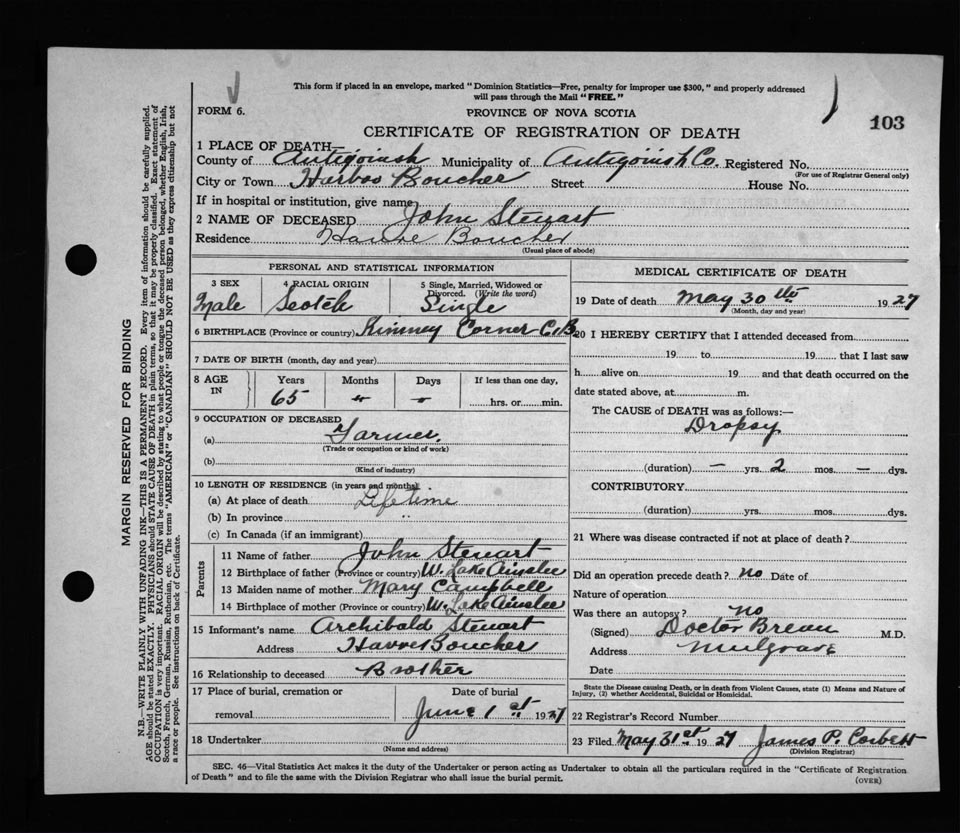 This form if placed in an envelope, marked "Dominion Statistics—Free, penalty for improper use $300," and properly addressed
will pass through the Mail "FREE."
FORM 6.
PROVINCE OF NOVA SCOTIA
103
CERTIFICATE OF REGISTRATION OF DEATH
1 PLACE OF DEATH—
County of Antigonish Municipality of Antigonish Co. Registered No.
(For use of Registrar General only)
City or Town Harbor Boucher Street House No.
If in hospital or institution, give name
2 NAME OF DECEASED John Stewart
Residence Havre Boucher
(Usual place of abode)
PERSONAL AND STATISTICAL INFORMATION
3 SEX Male
4 RACIAL ORIGIN Scotch
5 Single, Married, Widowed or Divorced. (Write the word) Single
6 BIRTHPLACE (Province or country) Corner C.B.
7 DATE OF BIRTH (month, day and year)
8 AGE IN Years 65 Months Days If less than one day, hrs. or min.
9 OCCUPATION OF DECEASED
(a) Farmer.
(Trade or occupation or kind of work)
(b)
(Kind of industry)
10 LENGTH OF RESIDENCE (in years and months)
(a) At place of death Lifetime
(b) In province "
(c) In Canada (if an immigrant)
Parents
11 Name of father John Stewart
12 Birthplace of father (Province or country) W. Lake Ainslee
13 Maiden name of mother Mary Campbell
14 Birthplace of mother (Province or country) W. Lake Ainslee
15 Informant's name Archibald Stewart
Address Havre Boucher
16 Relationship to deceased Brother
17 Place of burial, cremation or removal
Date of burial June 1st 1927
18 Undertaker
(Name and address)
MEDICAL CERTIFICATE OF DEATH
19 Date of death May 30th 1927
(Month, day and year)
20 I HEREBY CERTIFY that I attended deceased from
19 to 19 that I last saw
h alive on 19 and that death occurred on the
date stated above, at m.
The CAUSE of DEATH was as follows:—
Dropsy
(duration) — yrs. 2 mos. — dys.
CONTRIBUTORY
(duration) yrs. mos. dys.
21 Where was disease contracted if not at place of death?
Did an operation precede death? no Date of
Nature of operation
Was there an autopsy? no
(Signed) Doctor Brean M.D.
Address Mulgrave
Date
State the Disease causing Death, or in death from Violent Causes, state (1) Means and Nature of
Injury, (2) whether Accidental, Suicidal or Homicidal.
22 Registrar's Record Number
23 Filed May 31st 1927 James P. Corbett
(Division Registrar)
SEC. 46—Vital Statistics Act makes it the duty of the Undertaker or person acting as Undertaker to obtain all the particulars required in the "Certificate of Registration
of Death" and to file the same with the Division Registrar who shall issue the burial permit.
(OVER)
MARGIN RESERVED FOR BINDING
N.B.—WRITE PLAINLY WITH UNFADING INK—THIS IS A PERMANENT RECORD. Every item of information should be carefully supplied.
AGE should be stated EXACTLY. PHYSICIANS should STATE CAUSE OF DEATH in plain terms, so that it may be properly classified. Exact statement of
OCCUPATION is very important. RACIAL ORIGIN will be described by stating to what people or tongue the deceased person belonged, whether English, Irish,
Scotch, French, German, Russian, Ruthenian, etc. The terms "AMERICAN" or "CANADIAN" SHOULD NOT BE USED as they express citizenship but not
a race or people. See instructions on back of Certificate.